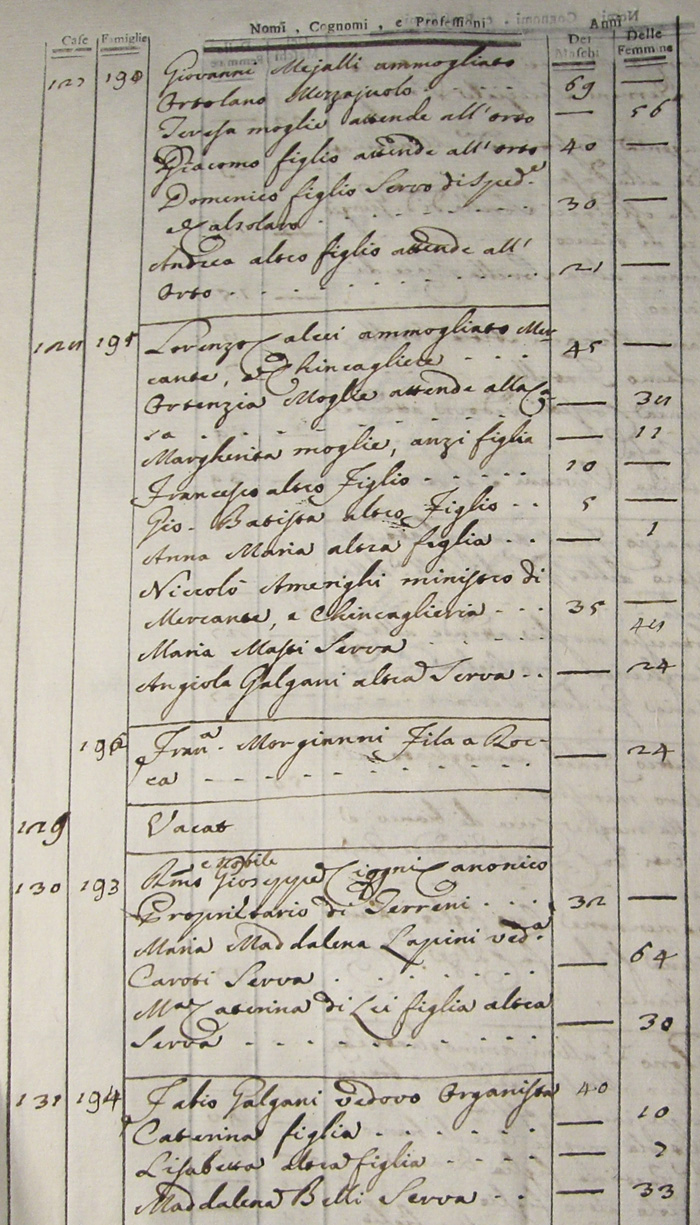 Case Famiglie Nomi, Cognomi, e Professioni Anni
Dei Maschi Delle Femmine
127 190 Giovanni Mejalli ammogliato
Ortolano Mezzajuolo 69 —
Teresa moglie attende all'orto — 56
Giacomo figlio attende all'orto 40 —
Domenico figlio Servo di Sped.e
e Calzolaro 30 —
Andrea altro figlio attende all'
Orto 21 —
191 Lorenzo Calcci ammogliato Mer
cante, e Chincagliere 45 —
Ortenzia Moglie attende alla Ca
sa — 34
Margherita moglie, anzi figlia — 11
Francesco altro Figlio 10 —
Gio. Batista altro Figlio 5 —
Anna Maria altra figlia — 1
Niccolò Amerighi ministro di
Mercante, e Chincaglieria 35 —
Maria Masti Serva 44
Angiola Galgani altra Serva — 24
Fran.a Morgianni Fila a Roc-
ca — 24
129 Vacat
130 193 Rmo e Nobile Giuseppe Cigni Canonico
Proprietario di Terreni 32 —
Maria Maddalena Lapini ved.a
Caroti Serva — 64
M.a Caterina di Lei figlia altra
Serva — 30
131 194 Fabio Galgani vedovo Organista 40
Caterina figlia — 10
Lisabetta altra figlia — 7
Maddalena Belli Serva — 33